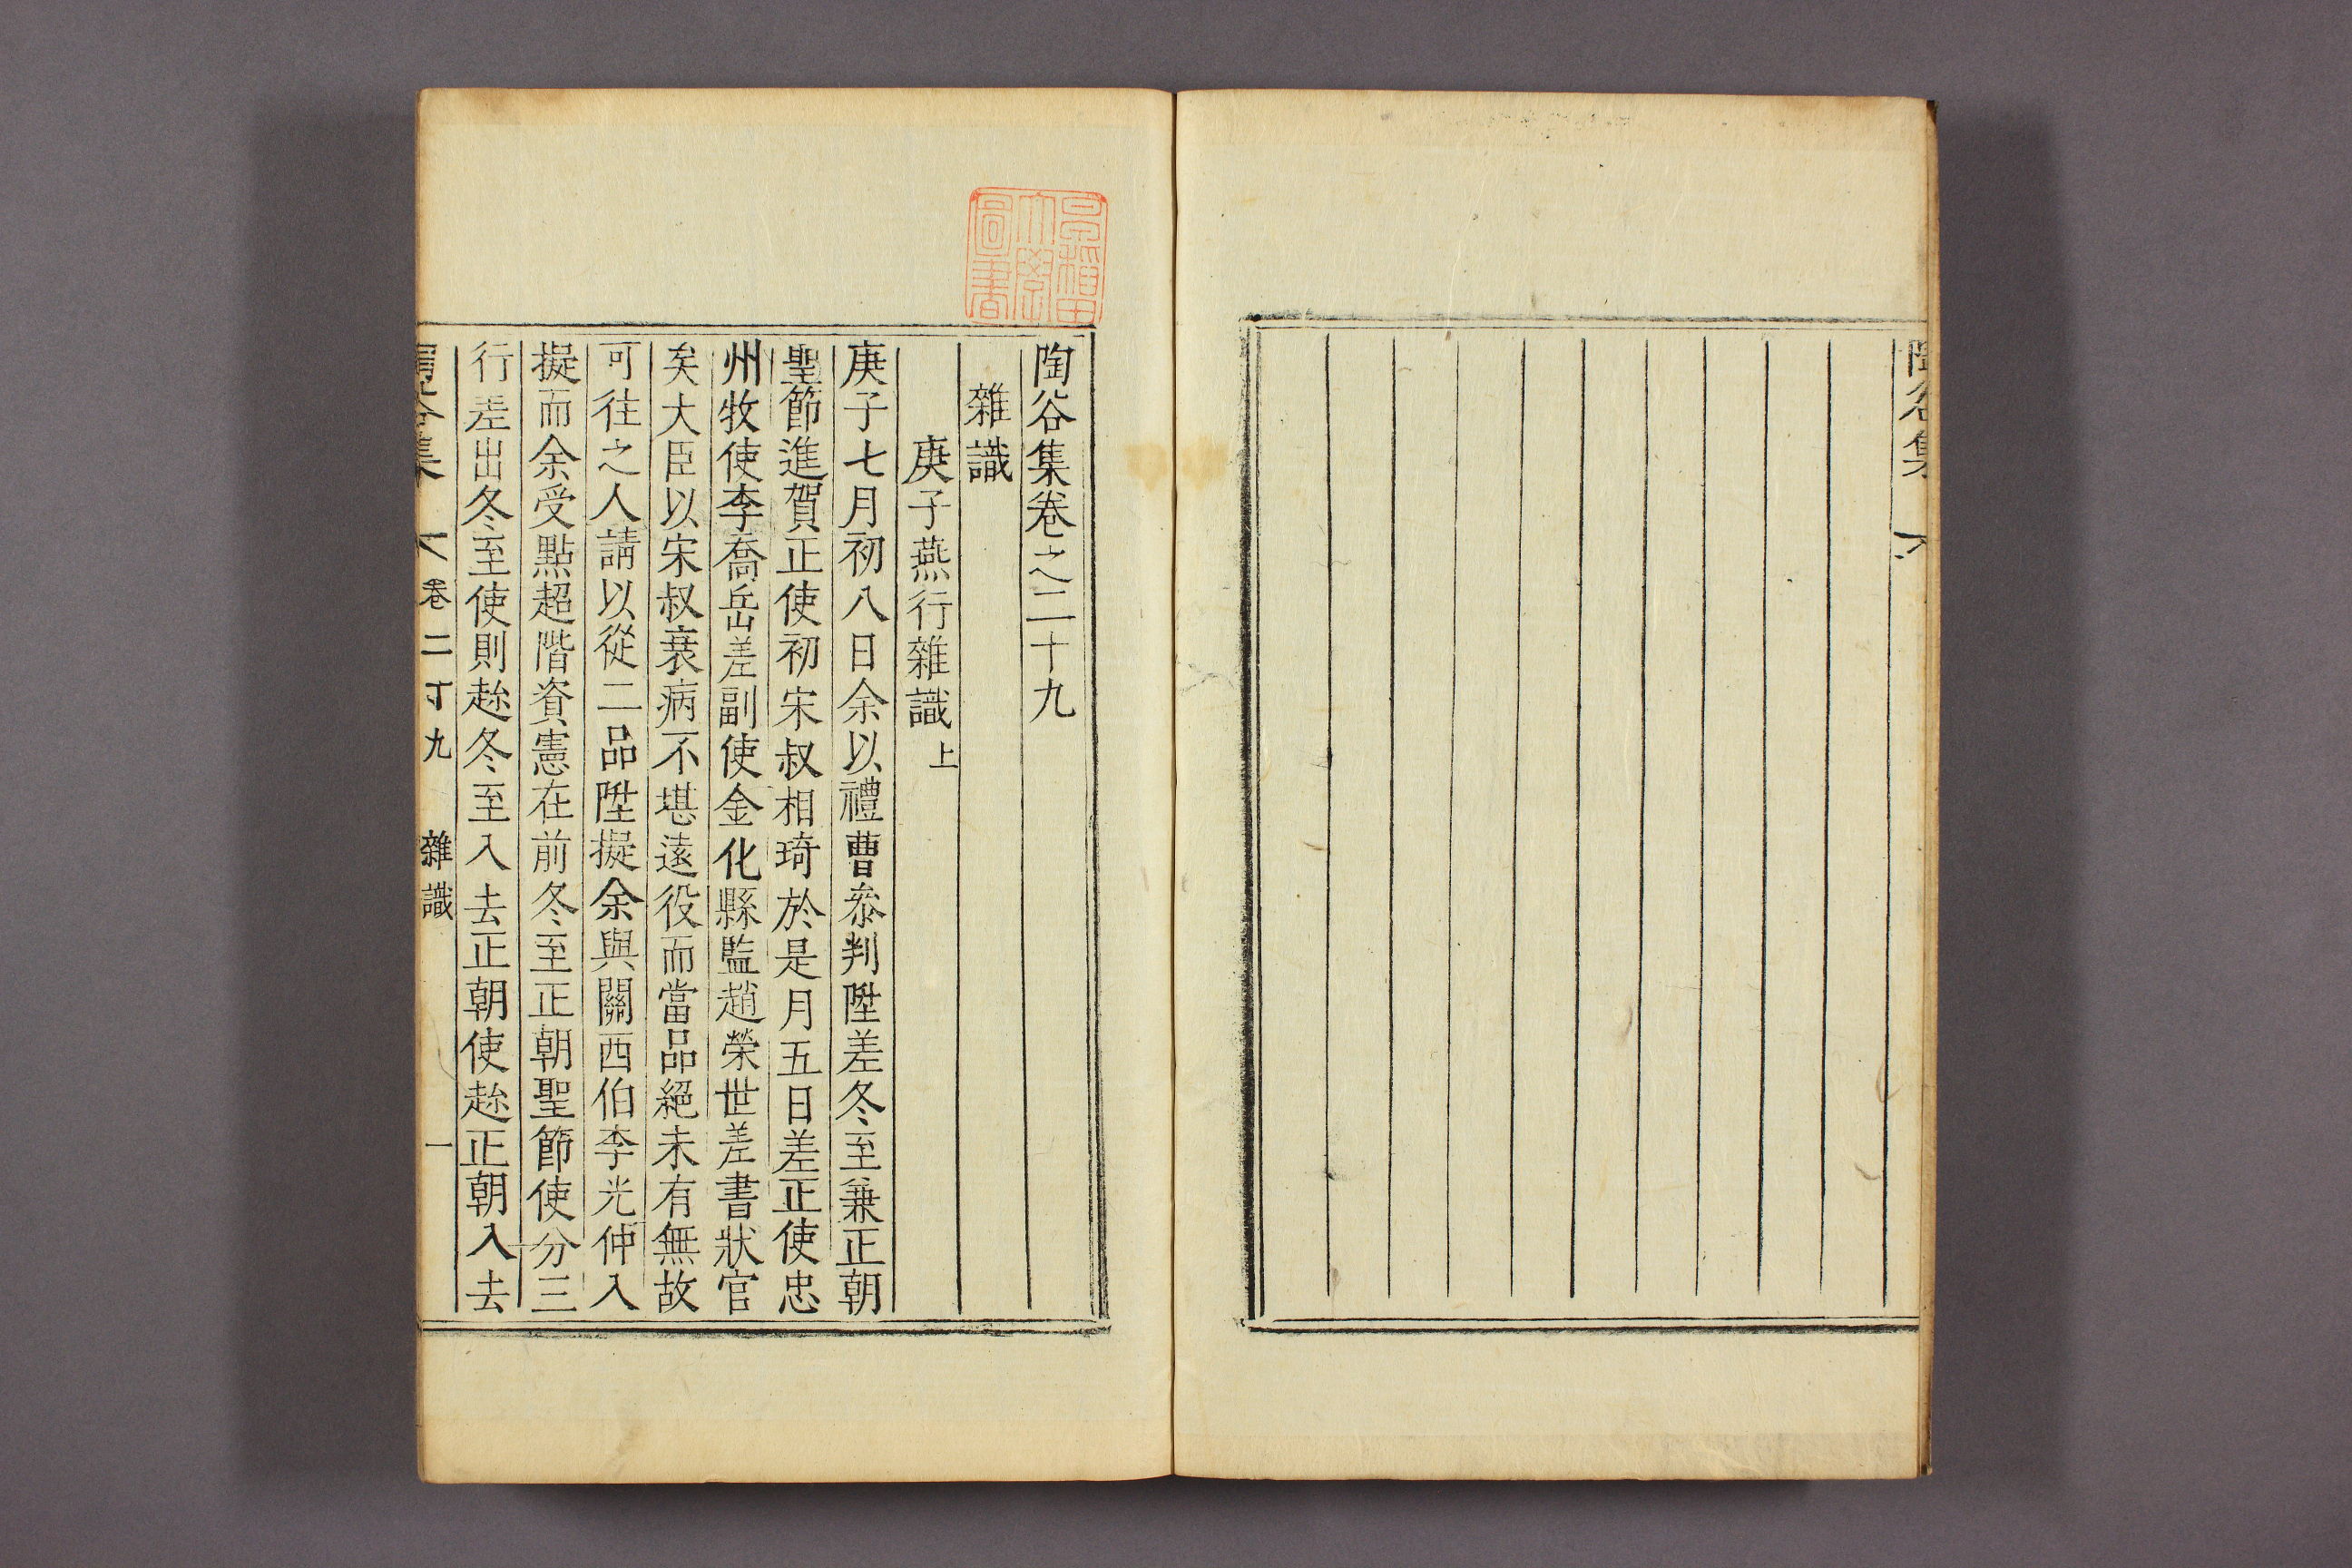 陶谷集
陶谷集卷之二十九
雜識
庚子燕行雜識上
庚子七月初八日余以禮曹叅判陞差冬至兼正朝
聖節進賀正使初宋叔相琦於是月五日差正使忠
州牧使李喬岳差副使金化縣監趙榮世差書狀官
矣大臣以宋叔衰病不堪遠役而當品絕未有無故
可往之人請以從二品陞擬余與關西伯李光仲入
擬而余受點超階資憲在前冬至正朝聖節使分三
行差出冬至使則趂冬至入去正朝使趂正朝入去
陶谷集 卷二十九 雜識 一
早稻田
大學
圖書